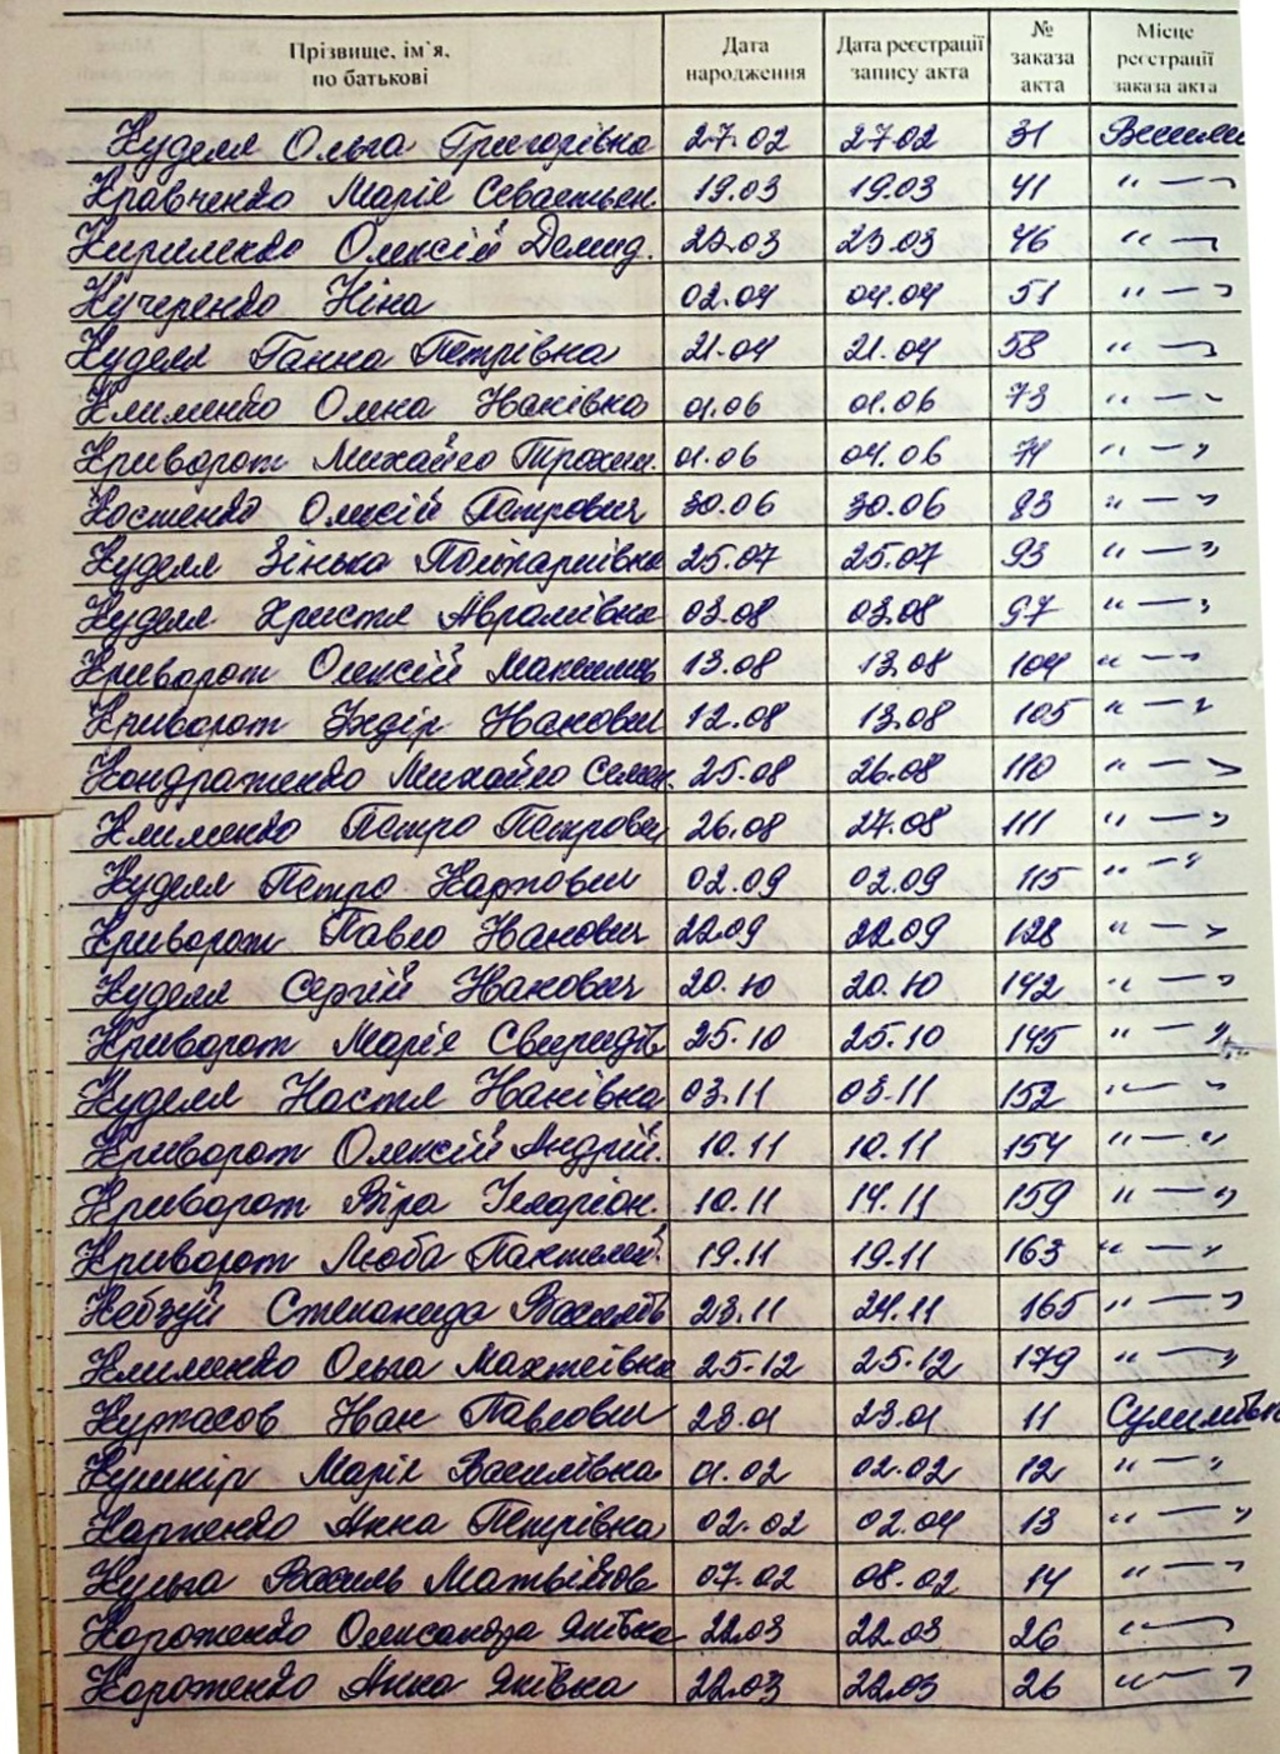 Прізвище, ім`я, по батькові Дата народження Дата реєстрації запису акта № заказа акта Місце реєстрації заказа акта
Куделя Ольга Григорівна 27.02 27.02 31
Кравченко Марія Севастьян. 19.03 19.03 41 " — "
Кириленко Олексій Демид. 23.03 23.03 46 " — "
Кучеренко Ніна 02.04 04.04 51 " — "
Куделя Ганна Петрівна 21.04 21.04 58 " — "
Клименко Олена Іванівна 01.06 01.06 73 " — "
Криворот Михайло Трохим. 01.06 04.06 74 " — "
Костенко Олексій Петрович 30.06 30.06 83 " — "
Куделя Зінька Полікарпівна 25.07 25.07 93 " — "
Куделя Христя Аврамівна 03.08 03.08 97 " — "
Криворот Олексій Максимов 13.08 13.08 104 " — "
Криворот Іванович 12.08 13.08 105 " — "
Кондратенко Михайло Семен. 25.08 26.08 110 " — "
Клименко Петро Петрович 26.08 27.08 111 " — "
Куделя Петро Карпович 02.09 02.09 115 " — "
Криворот Павло Іванович 22.09 22.09 128 " — "
Куделя Сергій Іванович 20.10 20.10 142 " — "
Криворот Марія Свиридів 25.10 25.10 145 " — "
Куделя Настя Іванівна 03.11 03.11 152 " — "
Криворот Олексій Андрій. 10.11 10.11 154 " — "
Криворот Віра Іларіон. 10.11 14.11 159 " — "
Криворот Люба Пантелей. 19.11 19.11 163 " — "
Кобзуй Степанида Василів 23.11 24.11 165 " — "
Клименко Ольга Матвіївна 25.12 25.12 179 " — "
Курпасов Іван Павлович 23.01 23.01 11 Сулимівка
Кушнір Марія Василівна 01.02 02.02 12 " — "
Карпенко Анна Петрівна 02.02 02.04 13 " — "
Кульга Василь Матвійов 07.02 08.02 14 " — "
Коротенко Олександра Яківна 22.03 22.03 26 " — "
Коротенко Анна Яківна 22.03 22.03 26 " — "